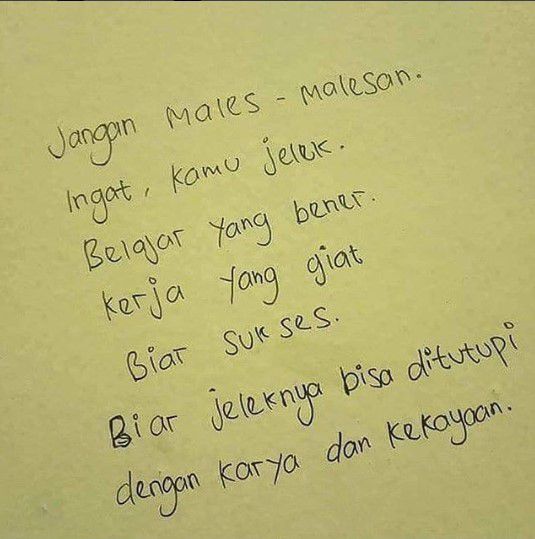 Jangan Males - Malesan.
Ingat, kamu jelek.
Belajar yang bener.
kerja yang giat
Biar sukses.
Biar jeleknya bisa ditutupi
dengan karya dan kekayaan.